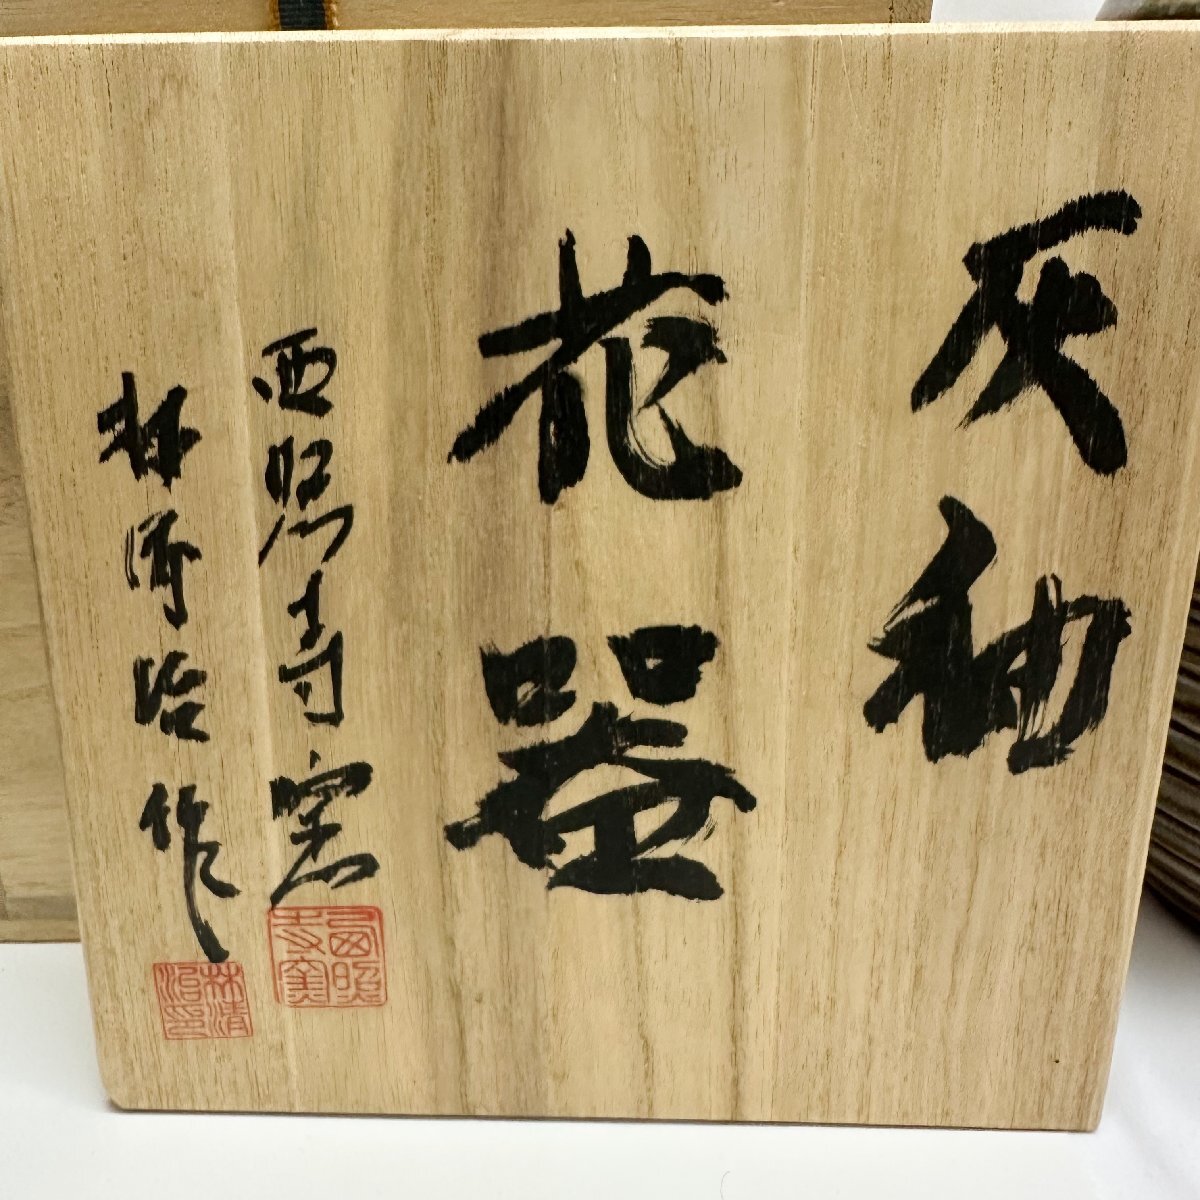 灰釉
花器
西照寺窯
林清治作
西照寺窯
林清治印